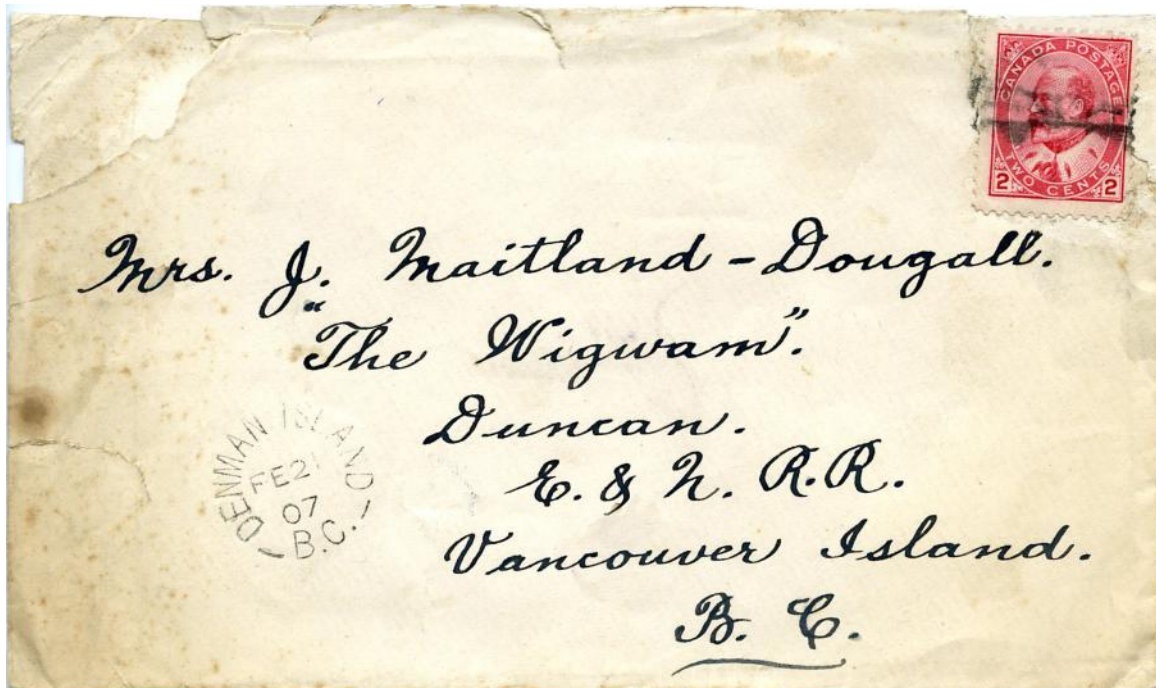 CANADA POSTAGE
TWO CENTS
2 2
Mrs. J. Maitland-Dougall.
"The Wigwam".
Duncan.
E. & N. R.R.
Vancouver Island.
B. C.
DENMAN ISLAND
FE 21
07
B.C.